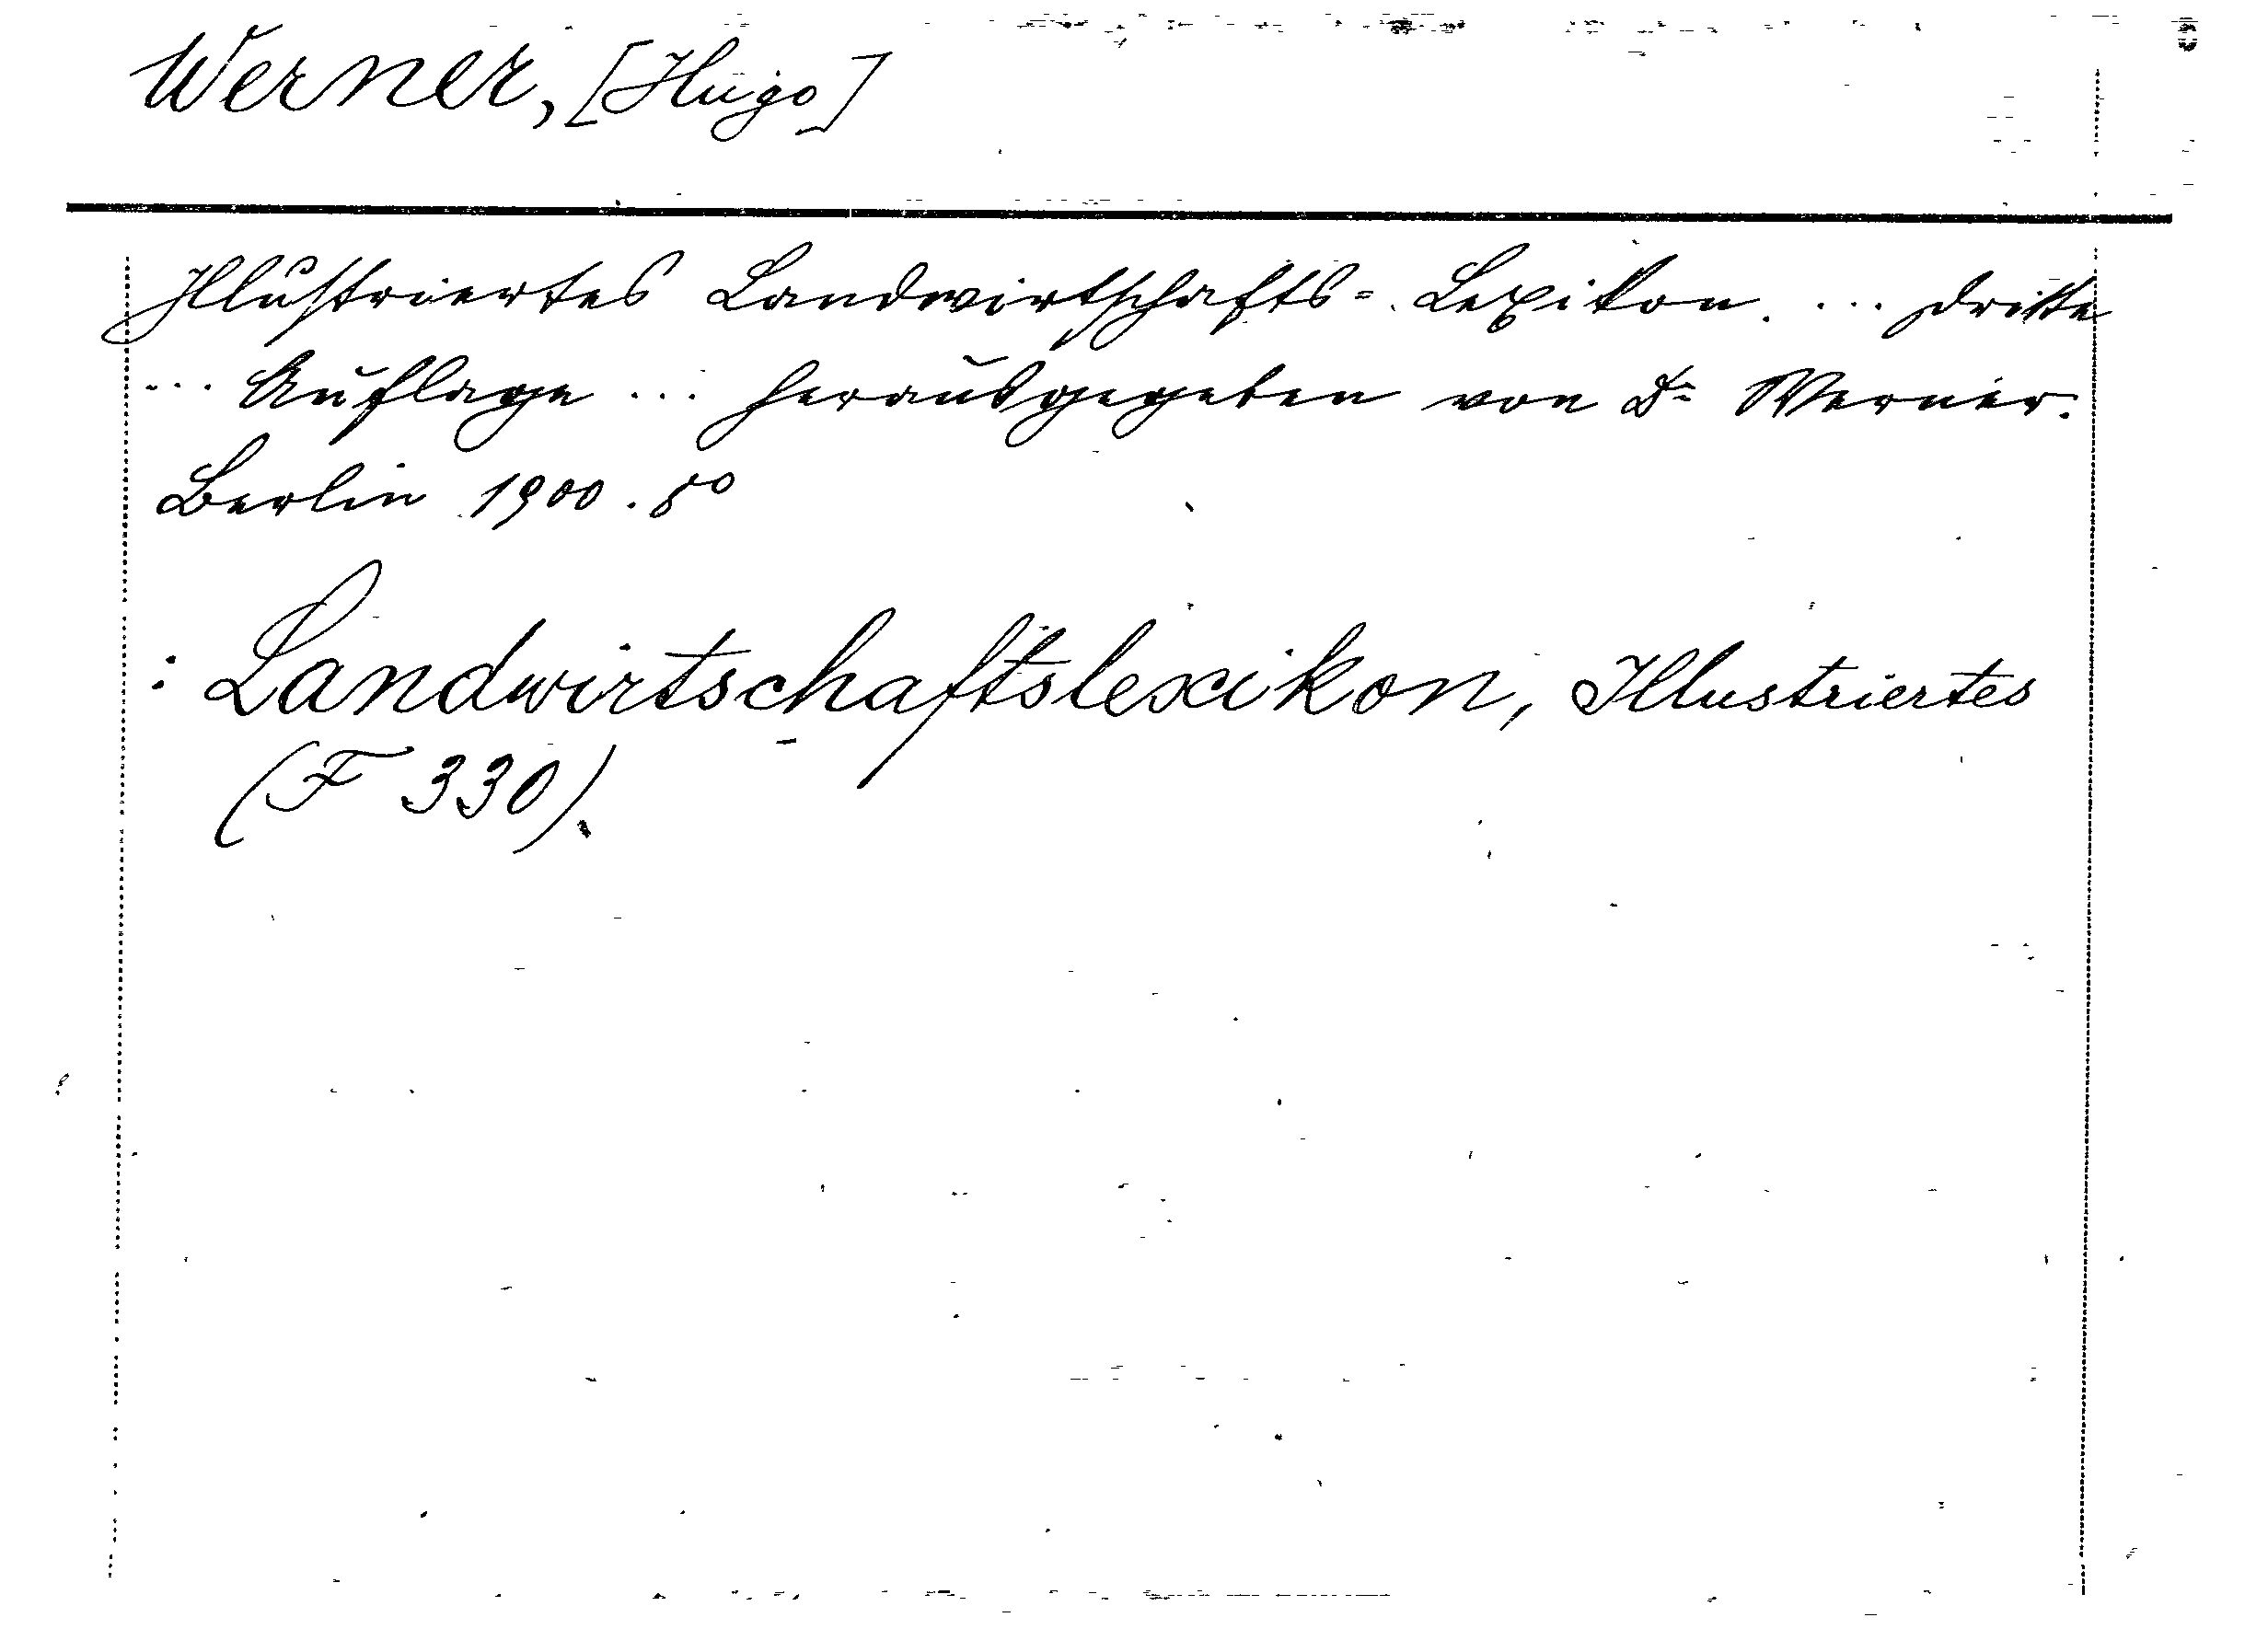 Werner, [Hugo]
Illustriertes Landwirtschafts-Lexikon. ... Dritte
... Auflage ... herausgegeben von Dr Werner.
Berlin 1900. 8°
: Landwirtschaftslexikon, Illustriertes
(F 330).